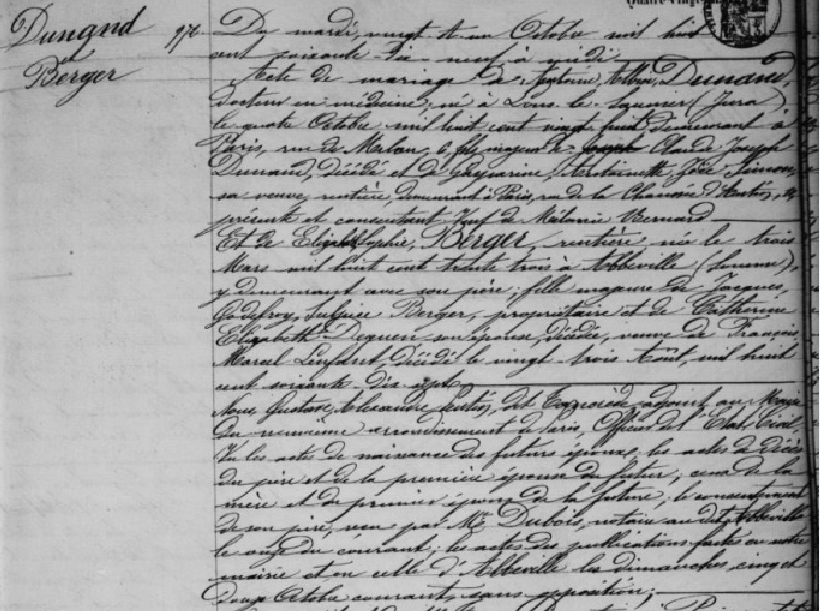 Dunand
et
Berger
976.
Du mardi, vingt et un Octobre mil huit
cent soixante-dix-neuf à midi
Acte de mariage de Antoine Albin, Dunand,
docteur en médecine, né à Lons-le-Saunier (Jura),
le quatre Octobre mil huit cent vingt huit, demeurant à
Paris, rue de Milan, 6, fils majeur de Joseph Claude Joseph
Dunand, décédé et de Antoinette Simon,
sa veuve, rentière, demeurant à Paris, rue de la Chaussée d'Antin,
présente et consentante Veuf de Mélanie Bernard
Et de Sophie, Berger, rentière, née le trois
Mars mil huit cent trente trois à Abbeville (Somme),
y demeurant avec son père, fille majeure de Jacques,
Godefroy, Sulpice Berger, propriétaire et de Catherine
Elizabeth son épouse, décédée, veuve de François
Marcel Lenfant, décédé le vingt trois Août, mil huit
cent soixante dix sept
Nous, Gustave, Alexandre adjoint au Maire
du neuvième arrondissement de Paris, Officier de l'Etat-Civil,
Vu les actes de naissance des futurs époux, les actes de décès
du père et de la première épouse du futur, ceux de la
mère et du premier époux de la future, le consentement
de son père, reçu par Me Dubois, notaire au dit Abbeville
le onze du courant; les actes des publications faites en cette
mairie et en celle d'Abbeville les dimanches cinq et
douze Octobre courant, sans opposition;